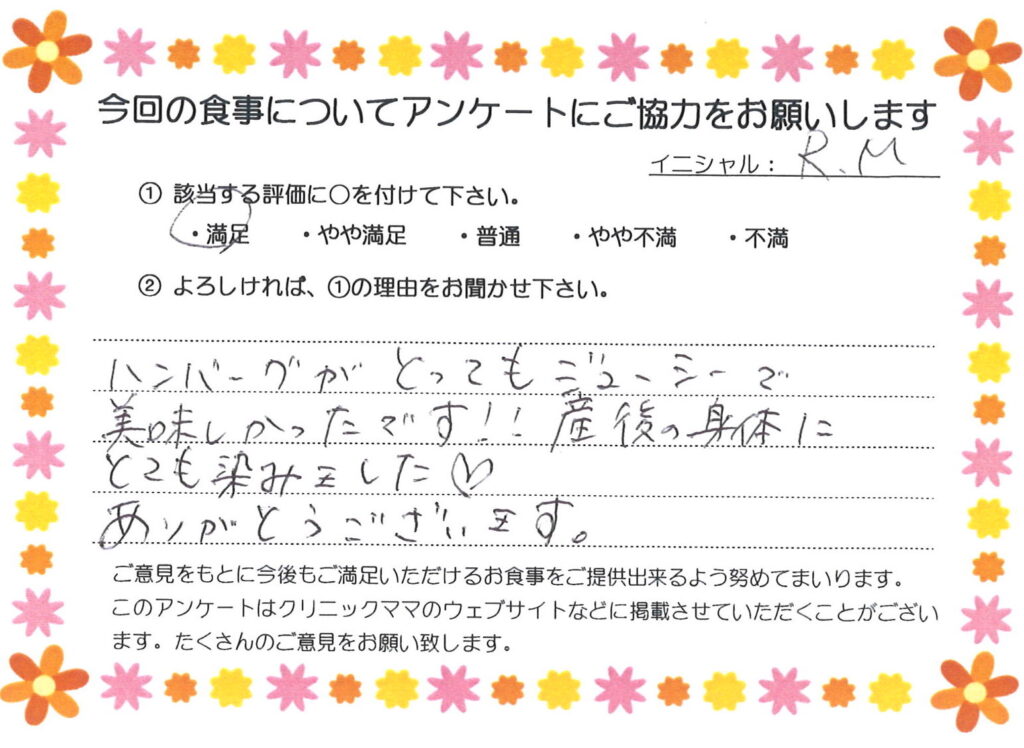 今回の食事についてアンケートにご協力をお願いします
イニシャル： R.M
① 該当する評価に○を付けて下さい。
・満足 ・やや満足 ・普通 ・やや不満 ・不満
② よろしければ、①の理由をお聞かせ下さい。
ハンバーグがとってもジューシーで
美味しかったです!! 産後の身体に
とても染みました♡
ありがとうございます。
ご意見をもとに今後もご満足いただけるお食事をご提供出来るよう努めてまいります。
このアンケートはクリニックママのウェブサイトなどに掲載させていただくことがござい
ます。たくさんのご意見をお願い致します。